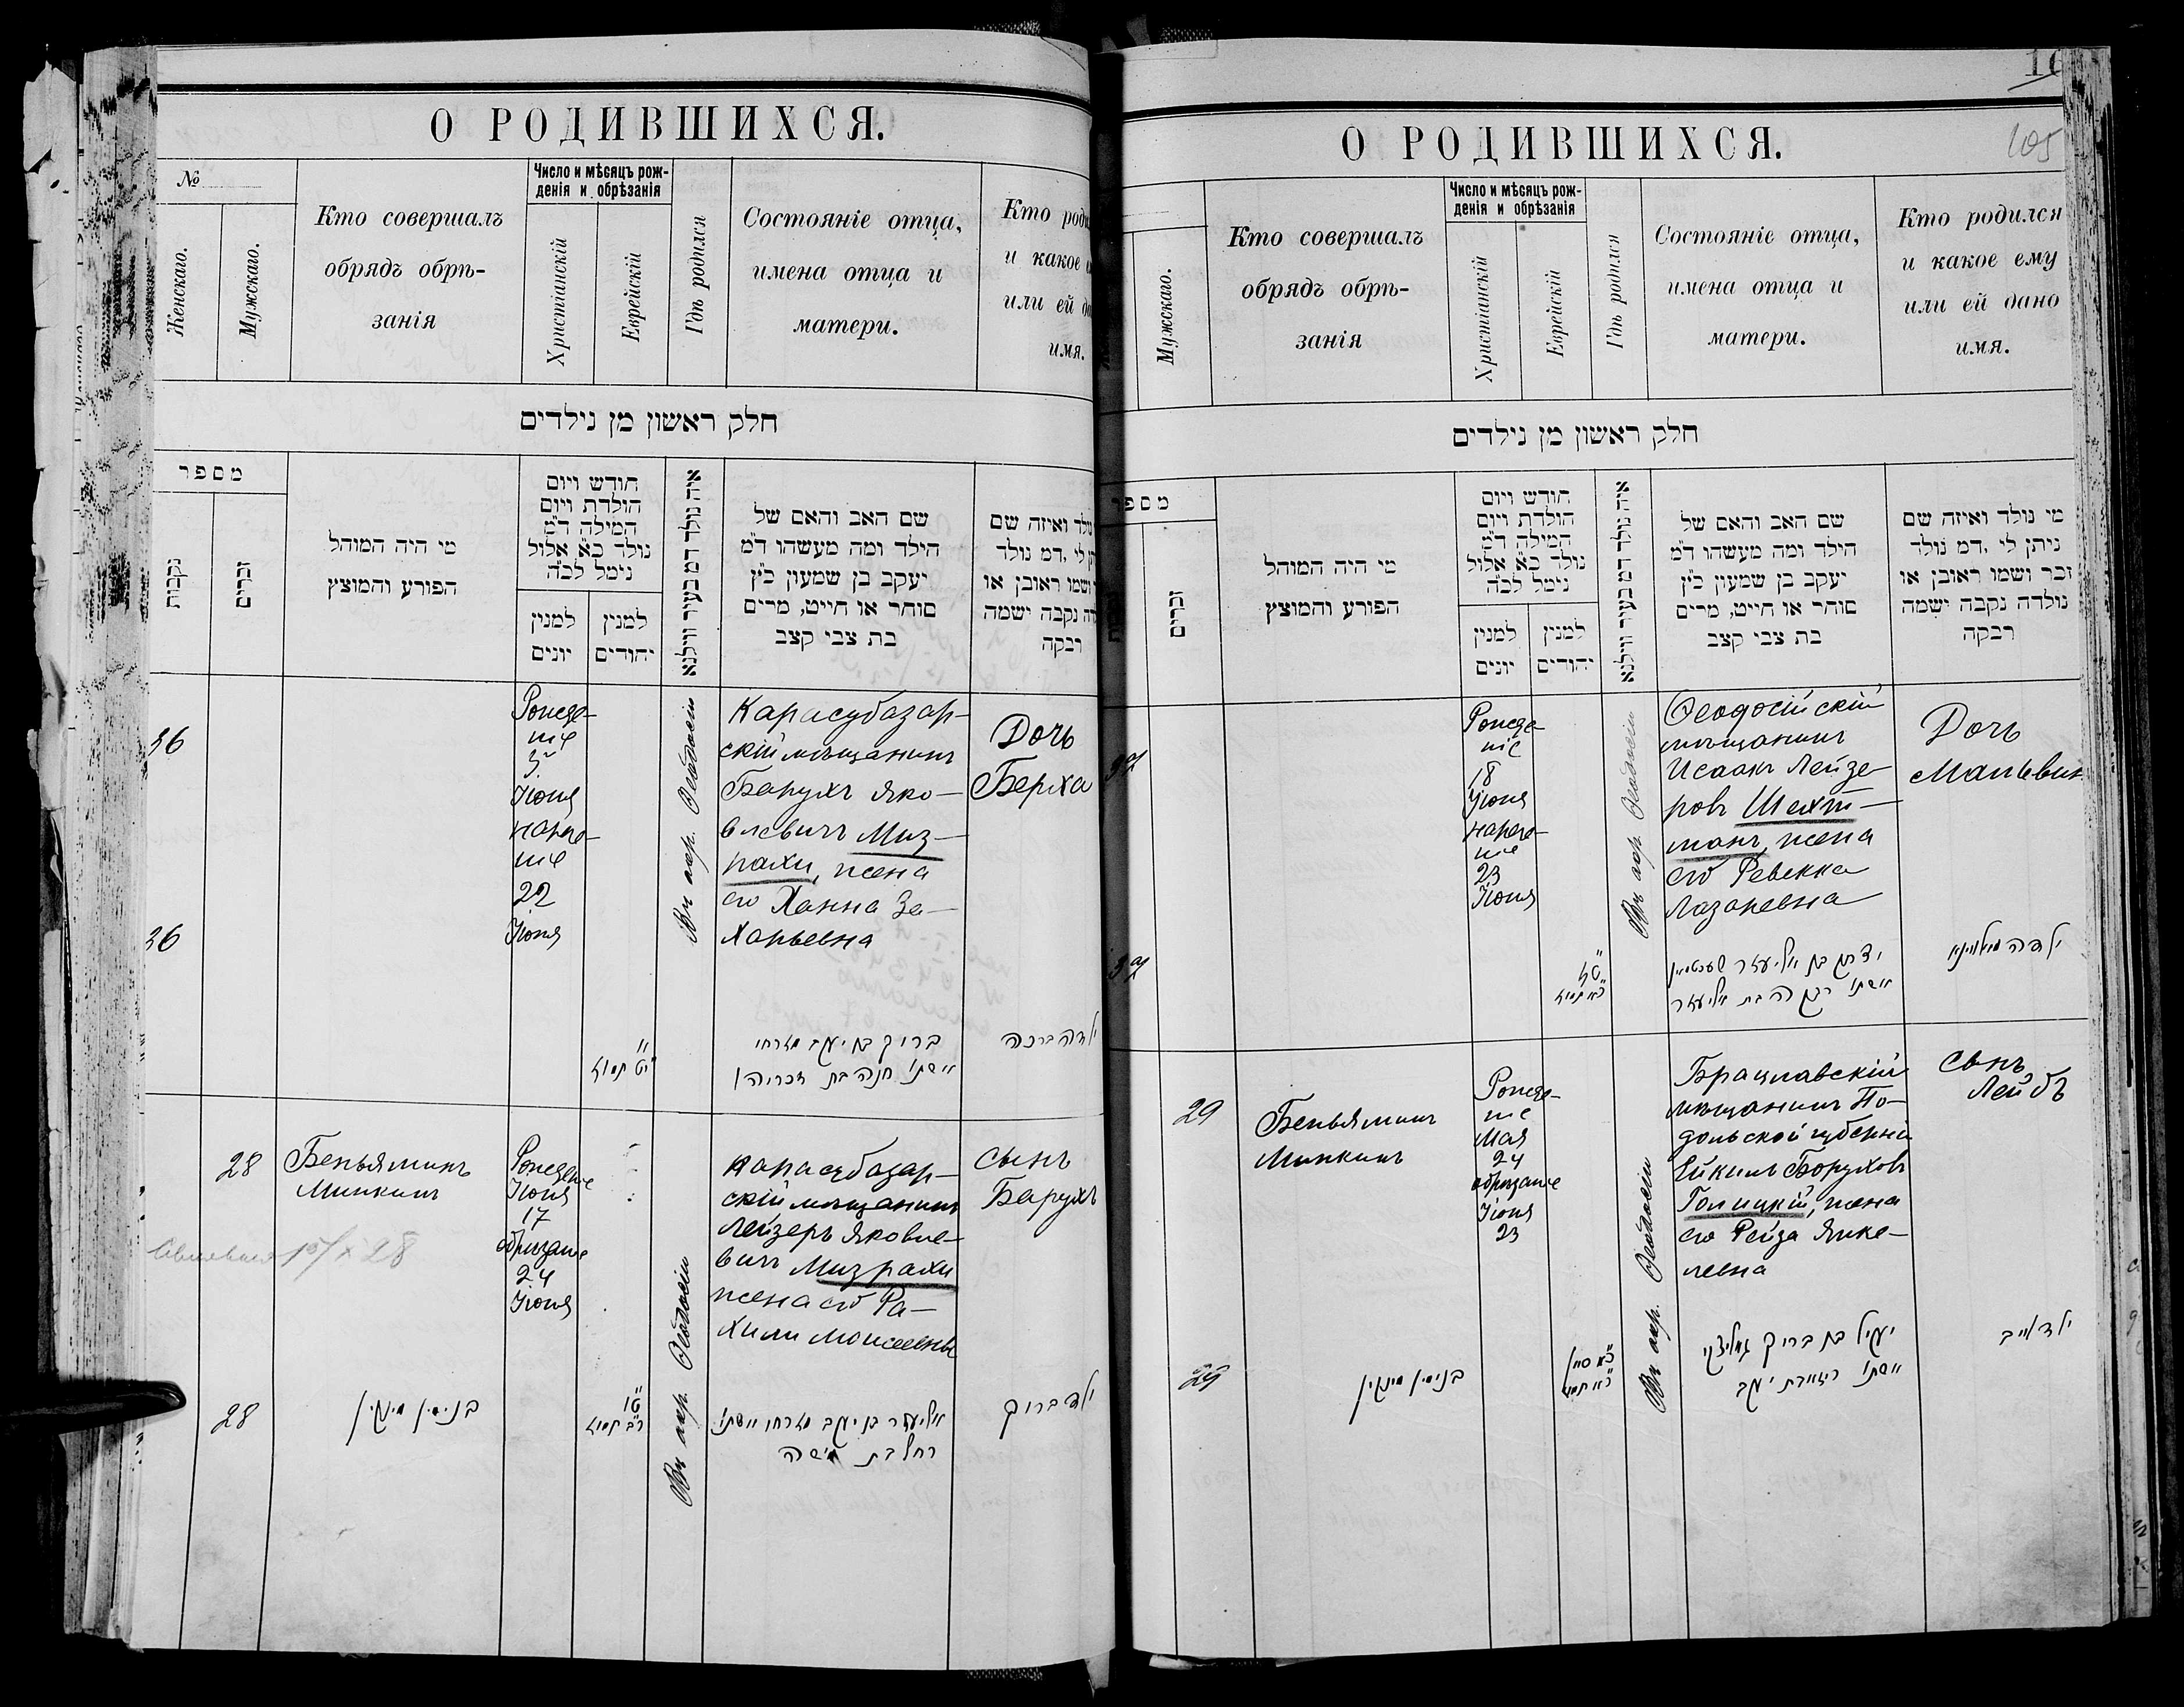 О РОДИВШИХСЯ.
№
Женскаго.
Мужскаго.
Кто совершалъ
обрядъ обрѣ-
занія
Число и мѣсяцъ рож-
денія и обрѣзанія
Христіанскій
Еврейскій
Гдѣ родился
Состояніе отца,
имена отца и
матери.
Кто
и какое
или ей
имя.
חלק ראשון מן נילדים
מספר
נקבות
זכרים
מי היה המוהל
הפורע והמוצץ
חודש ויום
הולדת ויום
המילה ד״מ
נולד כ״א אלול
נימל לכ״ה
למנין
יונים
למנין
יהודים
איה נולד דמ בעיר ווילנא
שם האב והאם של
הילד ומה מעשהו ד״מ
יעקב בן שמעון כ״ץ
סוחר או חייט, מרים
בת צבי קצב
ואיזה שם
לי, דמ נולד
ושמו ראובן או
נקבה ישמה
רבקה
36
Рожде-
ніе
3
Іюня
нарече-
ніе
22
Іюня
Въ гор. Ѳеодосіи
Карасубазар-
скій мѣщанинъ
Барухъ Яко-
влевичъ Миз-
рахи, жена
его Ханна За-
харьевна
Дочь
Берха
36
י״ט תמוז
ברוך בן יעקב מזרחי
אישתו חנה בת זכריה
ילדה ברכה
28
Беньяминъ
Минкинъ
Рожденіе
Іюня
17
обрѣзаніе
24
Іюня
Въ гор. Ѳеодосіи
Карасубазар-
скій мѣщанинъ
Лейзеръ Яковле-
вичъ Мизрахи
жена его Ра-
хили Моисеевны
сынъ
Барухъ
28
28
בנימין מינקין
ט״ו
כ״ב תמוז
אליעזר בן יעקב מזרחי אישתו
רחל בת מישה
ילד ברוך
10
105
О РОДИВШИХСЯ.
Мужскаго.
Кто совершалъ
обрядъ обрѣ-
занія
Число и мѣсяцъ рож-
денія и обрѣзанія
Христіанскій
Еврейскій
Гдѣ родился
Состояніе отца,
имена отца и
матери.
Кто родился
и какое ему
или ей дано
имя.
חלק ראשון מן נילדים
מספר
זכרים
מי היה המוהל
הפורע והמוצץ
חודש ויום
הולדת ויום
המילה ד״מ
נולד כ״א אלול
נימל לכ״ה
למנין
יונים
למנין
יהודים
איה נולד דמ בעיר ווילנא
שם האב והאם של
הילד ומה מעשהו ד״מ
יעקב בן שמעון כ״ץ
סוחר או חייט, מרים
בת צבי קצב
מי נולד ואיזה שם
ניתן לי, דמ נולד
זכר ושמו ראובן או
נולדה נקבה ישמה
רבקה
37
Рожде-
ніе
18
Іюня
нарече-
ніе
23
Іюня
Въ гор. Ѳеодосіи
Ѳеодосійскій
мѣщанинъ
Исаакъ Лейзе-
ровъ Шехт-
манъ, жена
его Ревекка
Лазаревна
Дочь
37
כ״א תמוז
יצחק בן אליעזר שעכטמאן
אישתו רבקה בת אליעזר
ילדה
29
Беньяминъ
Минкинъ
Рожде-
ніе
Мая
24
обрѣзаніе
Іюня
23
Въ гор. Ѳеодосіи
Брацлавскій
мѣщанинъ По-
дольской губерніи
Борухов
Голицкій, жена
его Рейза Янке-
левна
сынъ
Лейбъ
29
בנימין מינקין
כ״א סיון
כ״א תמוז
בן ברוך
אישתו רייזא בת יעקב
ילד לייב